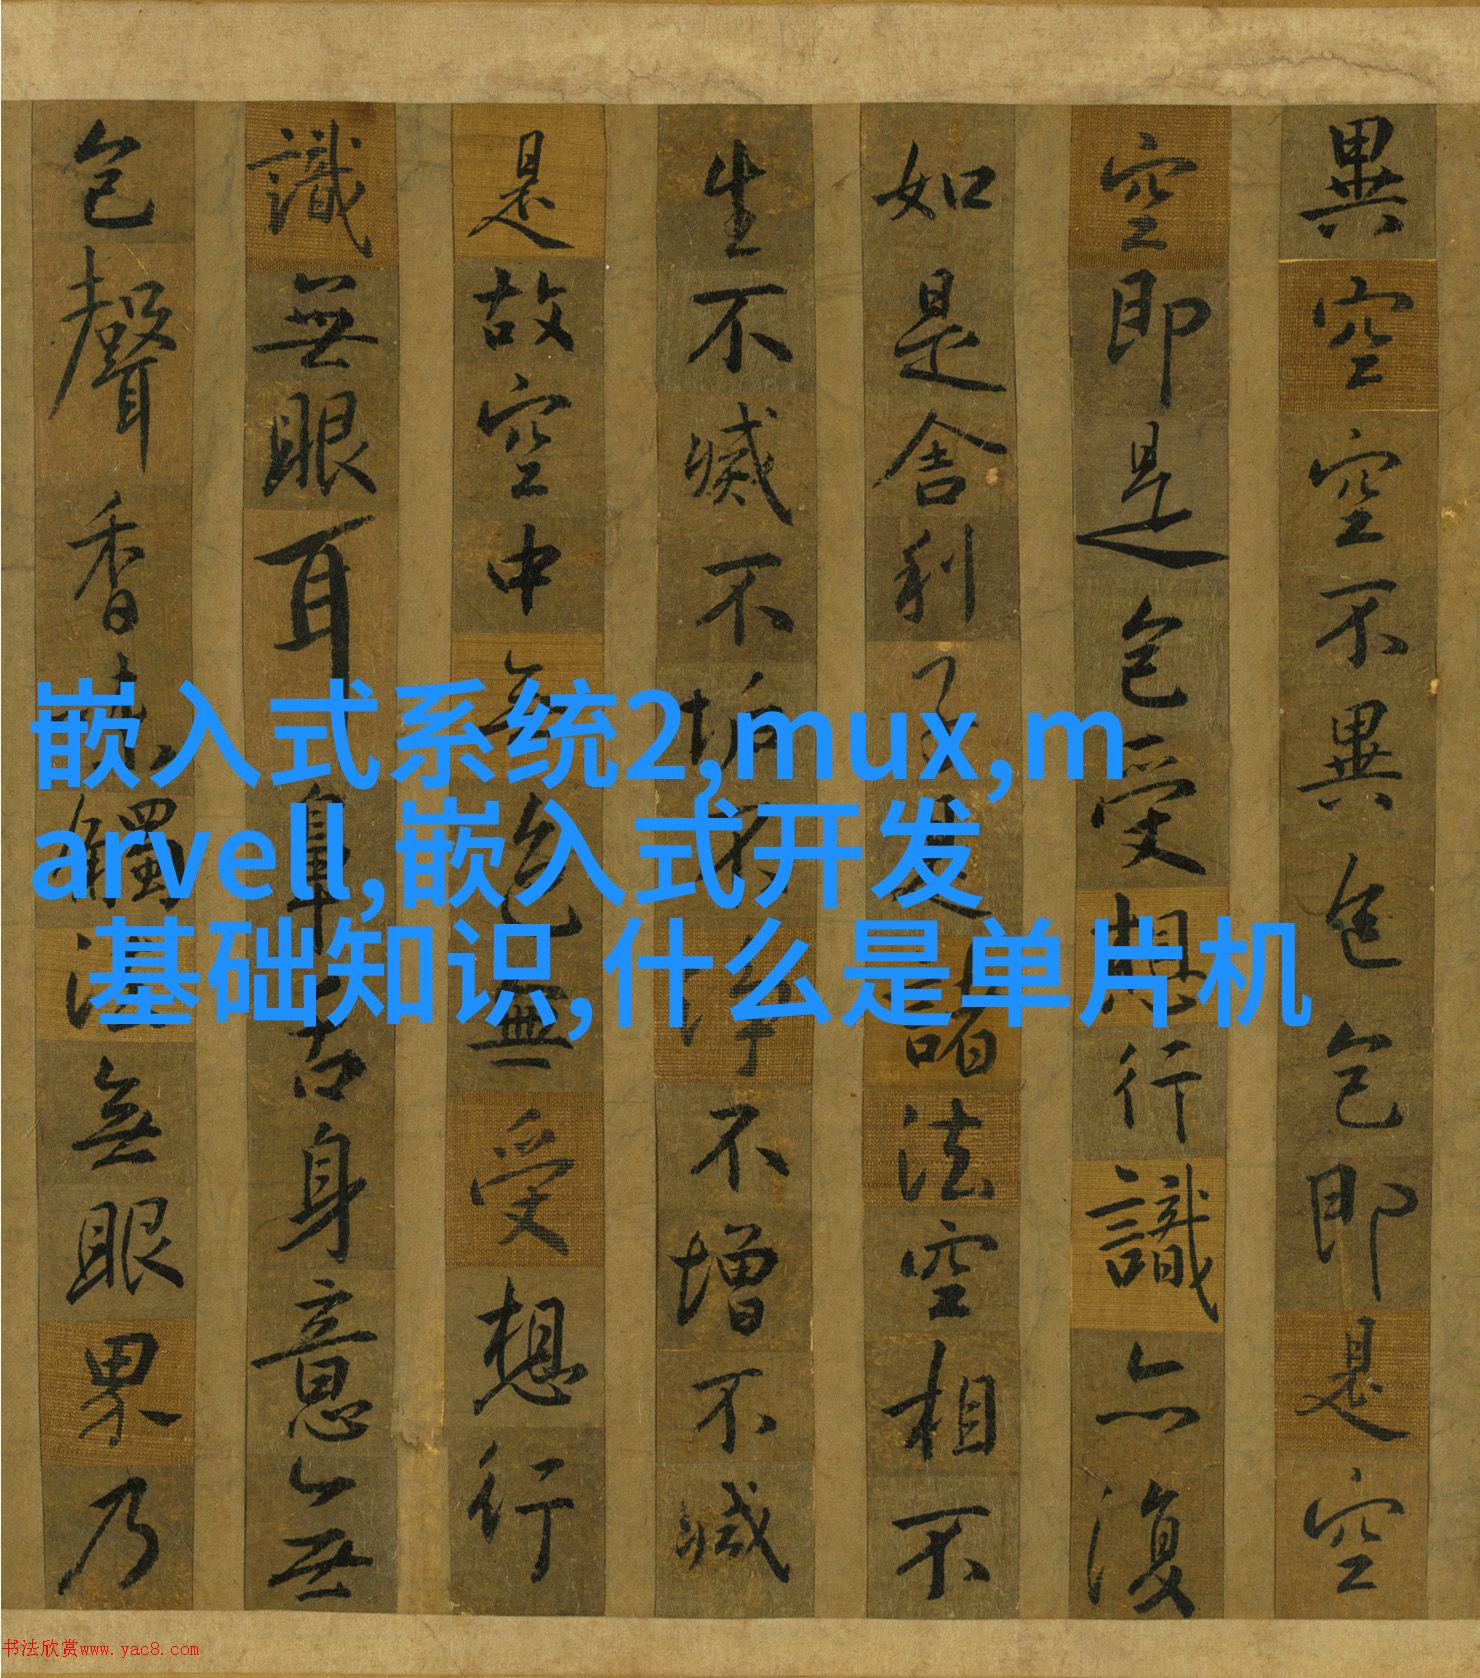 異空空不異色色即是空
空即是色受想行識亦復
如是舍利子是諸法空相不
生不滅不垢不淨不增不減
是故空中無色無受想行
識無眼耳鼻舌身意無
色聲香味觸法無眼界乃
嵌入式系统2,mux,m
arvell,嵌入式开发
基础知识,什么是单片机
书法欣赏www.yac8.com